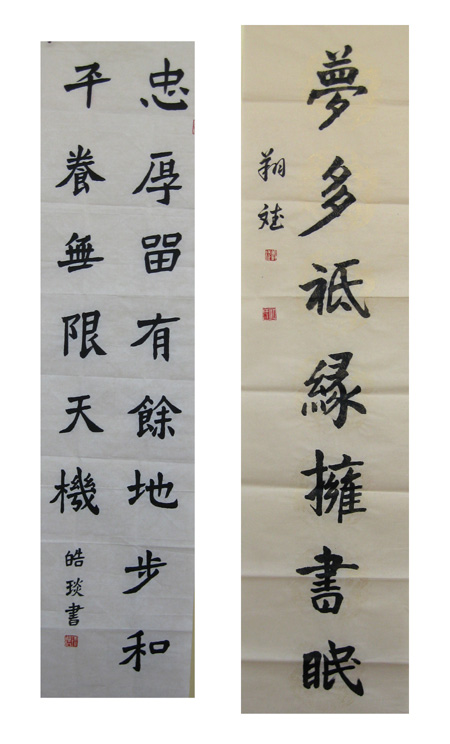 忠厚畱有餘地步和
平養無限天機
皓琰書
夢多祗緣擁書眠
翔斌